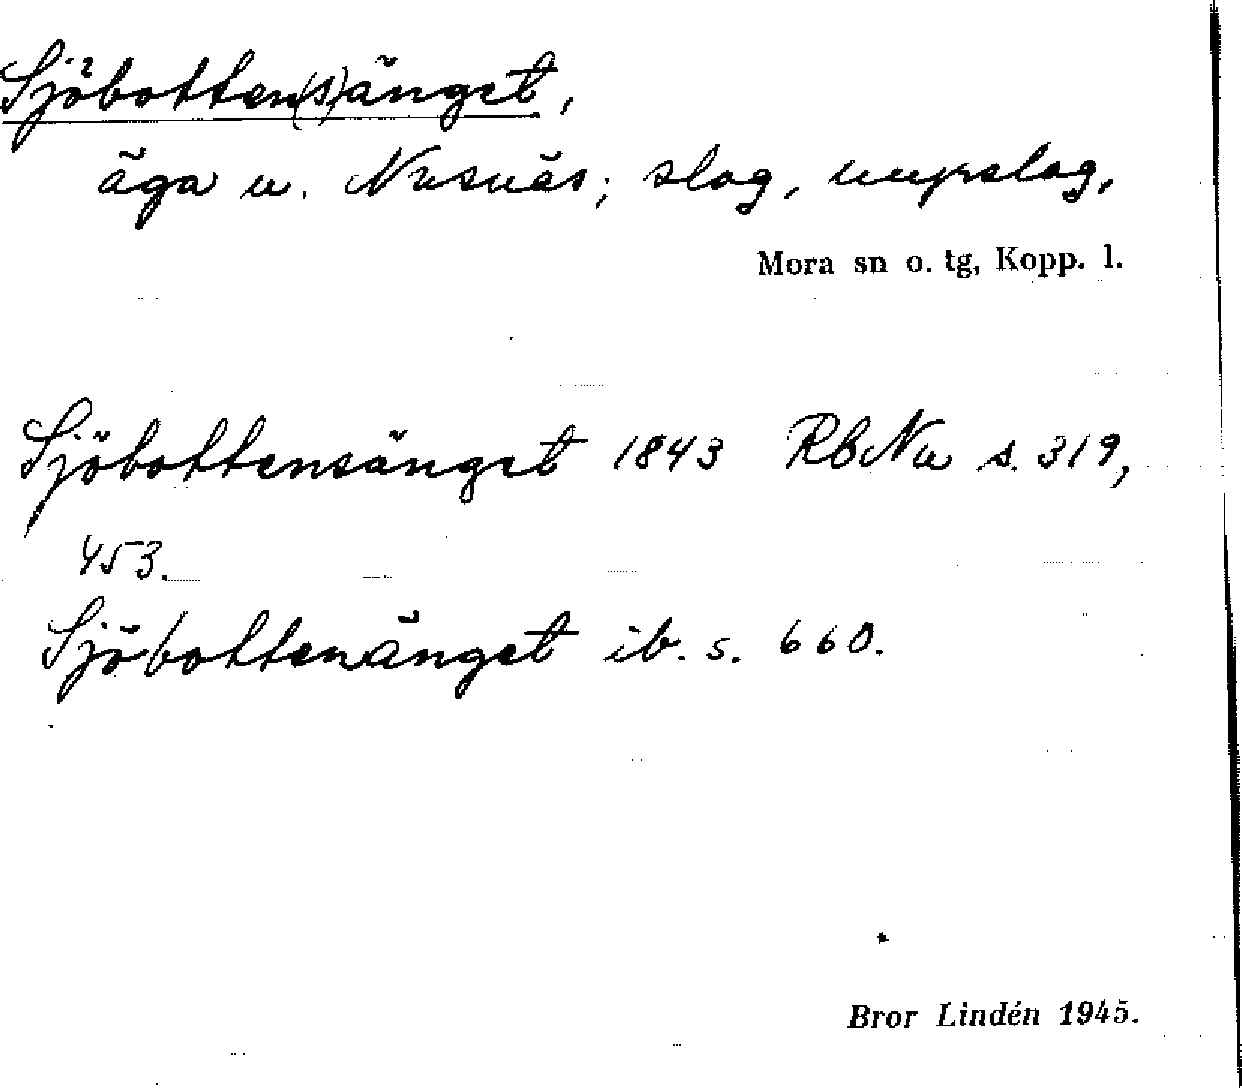 Sjöbotten(s)änget,
äga u. Nusnäs; slog, uppslog,
Mora sn o. tg, Kopp. l.
Sjöbottensänget 1843 RbNu s. 319,
453.
Sjöbottenänget ib. s. 660.
Bror Lindén 1945.